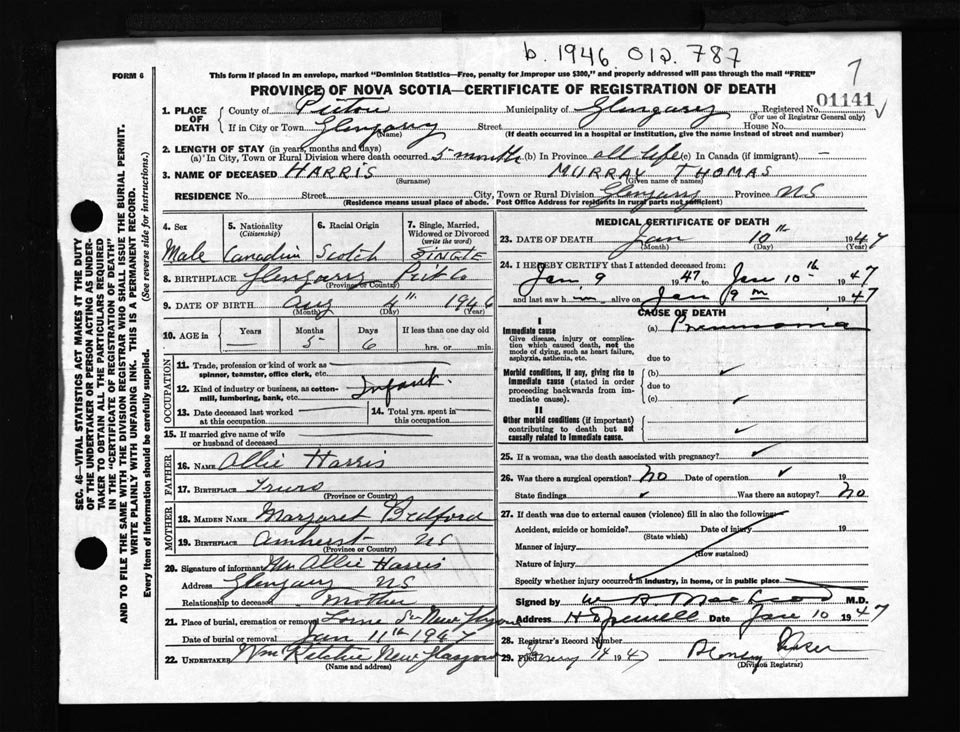 b. 1946. 012. 787
7
FORM 6
This form if placed in an envelope, marked "Dominion Statistics—Free, penalty for improper use $300," and properly addressed will pass through the mail "FREE"
PROVINCE OF NOVA SCOTIA—CERTIFICATE OF REGISTRATION OF DEATH
1. PLACE OF DEATH County of Pictou Municipality of Glengarry Registered No. 01141
(For use of Registrar General only)
If in City or Town Glengarry Street House No.
(Name) (If death occurred in a hospital or institution, give the name instead of street and number)
2. LENGTH OF STAY (in years, months and days)
(a) In City, Town or Rural Division where death occurred 5 months (b) In Province all life (c) In Canada (if immigrant) —
3. NAME OF DECEASED HARRIS MURRAY THOMAS
(Surname) (Given name or names)
RESIDENCE No. Street City, Town or Rural Division Glengarry Province NS
(Residence means usual place of abode. Post Office Address for residents in rural parts not sufficient)
4. Sex 5. Nationality (Citizenship) 6. Racial Origin 7. Single, Married, Widowed or Divorced (write the word)
Male Canadian Scotch SINGLE
8. BIRTHPLACE Glengarry Pict Co
(Province or County)
9. DATE OF BIRTH Aug 4th 1946
(Month) (Day) (Year)
10. AGE in Years Months Days If less than one day old
— 5 6 hrs. or min.
OCCUPATION
11. Trade, profession or kind of work as spinner, teamster, office clerk, etc.
12. Kind of industry or business, as cotton-mill, lumbering, bank, etc. Infant.
13. Date deceased last worked at this occupation 14. Total yrs. spent in this occupation
15. If married give name of wife or husband of deceased
FATHER
16. NAME Allie Harris
17. BIRTHPLACE Truro
(Province or Country)
MOTHER
18. MAIDEN NAME Margaret Bedford
19. BIRTHPLACE Amherst NS
(Province or Country)
20. Signature of informant Mr Allie Harris
Address Glengarry NS
Relationship to deceased mother
21. Place of burial, cremation or removal Lorne St New Glasgow
Date of burial or removal Jan 11th 1947
22. UNDERTAKER Wm Ritchie New Glasgow
(Name and address)
MEDICAL CERTIFICATE OF DEATH
23. DATE OF DEATH Jan 10th 1947
(Month) (Day) (Year)
24. I HEREBY CERTIFY that I attended deceased from:
Jan 9 1947 to Jan 10th 1947
and last saw him alive on Jan 9th 1947
CAUSE OF DEATH
I
Immediate cause (a) Pneumonia
Give disease, injury or complication which caused death, not the mode of dying, such as heart failure, asphyxia, asthenia, etc. due to
Morbid conditions, if any, giving rise to immediate cause (stated in order proceeding backwards from immediate cause). (b) due to (c)
II
Other morbid conditions (if important) contributing to death but not causally related to immediate cause.
25. If a woman, was the death associated with pregnancy?
26. Was there a surgical operation? No Date of operation 19
State findings Was there an autopsy? No
27. If death was due to external causes (violence) fill in also the following:
Accident, suicide or homicide? Date of injury 19
(State which)
Manner of injury
(How sustained)
Nature of injury
Specify whether injury occurred in industry, in home, or in public place
Signed by W A MacLeod M.D.
Address Hopewell Date Jan 10 1947
28. Registrar's Record Number
29. Filed 1947
(Division Registrar)
SEC. 46—VITAL STATISTICS ACT MAKES IT THE DUTY
OF THE UNDERTAKER OR PERSON ACTING AS UNDERTAKER
TO OBTAIN ALL THE PARTICULARS REQUIRED
IN THE "CERTIFICATE OF REGISTRATION OF DEATH"
AND TO FILE THE SAME WITH THE DIVISION REGISTRAR WHO SHALL ISSUE THE BURIAL PERMIT.
WRITE PLAINLY WITH UNFADING INK. THIS IS A PERMANENT RECORD.
Every item of information should be carefully supplied. (See reverse side for instructions.)